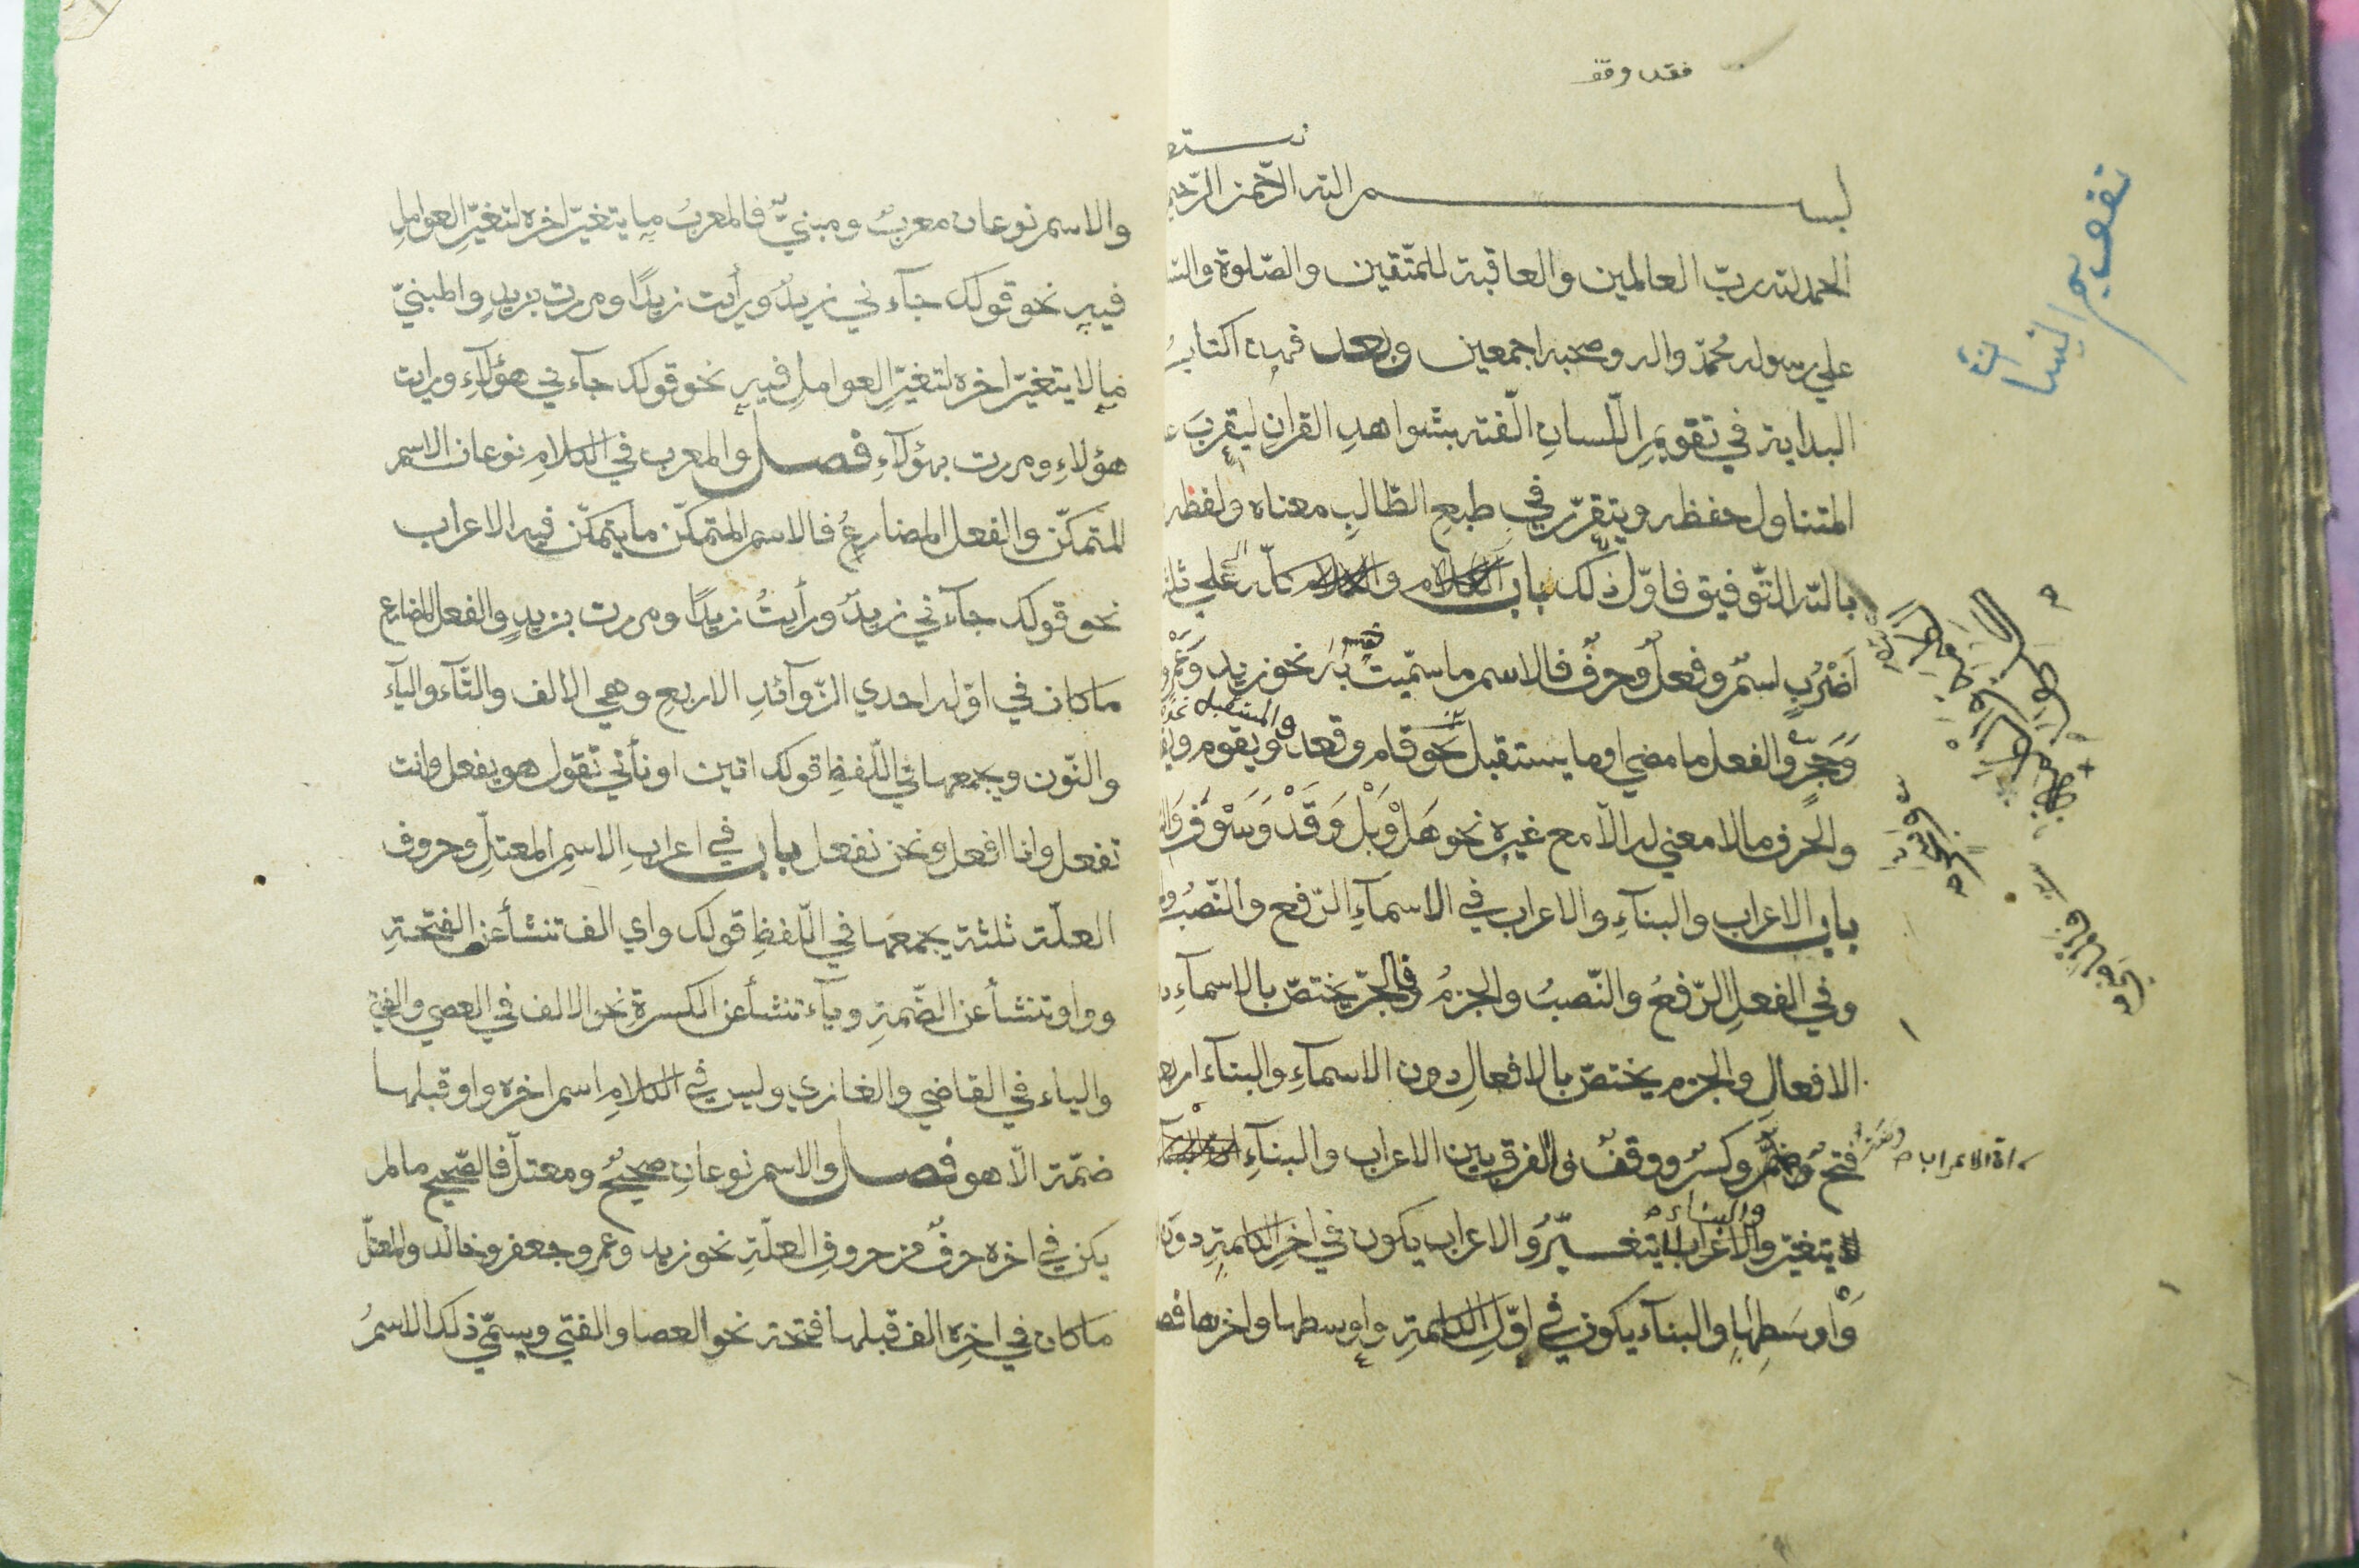 فقد وقف
نستع
بسم الله الرّحمن الرّحي
الحمد لله ربّ العالمين والعاقبة للمتّقين والصّلوة والسّ
علي رسوله محمّد واله وصحبه اجمعين وبعد فهذا كتاب
البداية في تقويم اللّسان الّفته بشواهد القران ليقرب
المتناول حفظه ويتقرّر في طبع الطّالب معناه ولفظه
بالله التّوفيق فاوّل ذلك باب الكلام والكلام كلّه علي ثلث
اَضْرُبٍ اسمٌ وفعلٌ وحرفٌ فالاسم ما سمّيت به نحو زيد وَعَمْرو
وَحَجَرٍ والفعل ما مضي او ما يستقبل نحو قام وقعد والمستقبل نحو يقوم ويق
والحرف مالا معني له الّا مع غيره نحو هَلْ وَبَلْ وَقَدْ وَسَوْفَ
باب الاعراب والبنآءِ والاعراب في الاسمآءِ الرّفع والنّصبُ
وفي الفعلِ الرّفعُ والنّصبُ والجزمُ فالجرّ يختصّ بالاسمآءِ د
الافعالِ والجزم يختصّ بالافعالِ دون الاسمآءِ والبنآء اربع
فتحٌ وضمٌّ وكسرٌ ووقفٌ والفرق بين الاعراب والبنآءِ
والبناء
لا يتغيّر والاعراب يتغــيّرُ والاعراب يكون في اخر الكلمةِ دون
اَوْ اوسَطِها والبنآء يكون في اوّلِ الكلمةِ واوسطها واخرها فص
والاسم نوعان معربٌ ومبنيٌّ فالمعربُ ما يتغيّر اخره لتغيّرِ العواملِ
فيه نحو قولك جآءني زيدٌ ورأيت زيدًا ومررت بزيدٍ والمبنيّ
مالا يتغيّر اخره لتغيّرِ العواملِ فيه نحو قولك جآءني هؤلآءِ ورايت
هؤلاءِ ومررت بهؤلآءِ فصــل والمعرب في الكلامِ نوعان الاسم
المتمكّن والفعل المضارعُ فالاسم المتمكّن ما يتمكّن فيه الاعراب
نحو قولك جآءني زيدٌ ورأيتُ زيدًا ومررت بزيدٍ والفعل المضارع
ما كان في اوّله احدي الزّوآئدِ الاربع وهي الالف والتّآء واليآء
والنّون ويجمعها في اللّفظِ قولك اتين او نأتي تقول هو يفعل وانت
تفعل وانا افعل ونحن نفعل باب في اعرابِ الاسمِ المعتلِّ وحروف
العلّة ثلثة يجمعها في اللّفظِ قولك واي الف تنشأ عن الفتحةِ
وواو تنشأ عن الضّمةِ ويآء تنشأ عن الكسرةِ نحو الالف في العصي والفتي
والياء في القاضي والغازي وليس في الكلامِ اسم اخره واو قبلها
ضمّة الّا هو فصــل والاسم نوعانِ صحيحٌ ومعتلّ فالصّحيح مالم
يكن في اخره حرفٌ من حروفِ العلّةِ نحو زيد وعمرو وجعفر وخالد والمعتلّ
ما كان في اخره الف قبلها فتحة نحو العصا والفتي ويسمّي ذلك الاسمُ